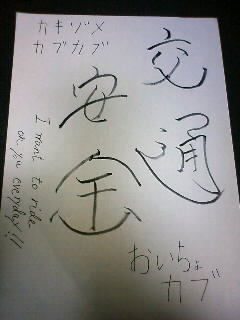 カキゾメ
カブカブ
交通
安全
I want to ride
on you everyday!!
おいちょ
カブ